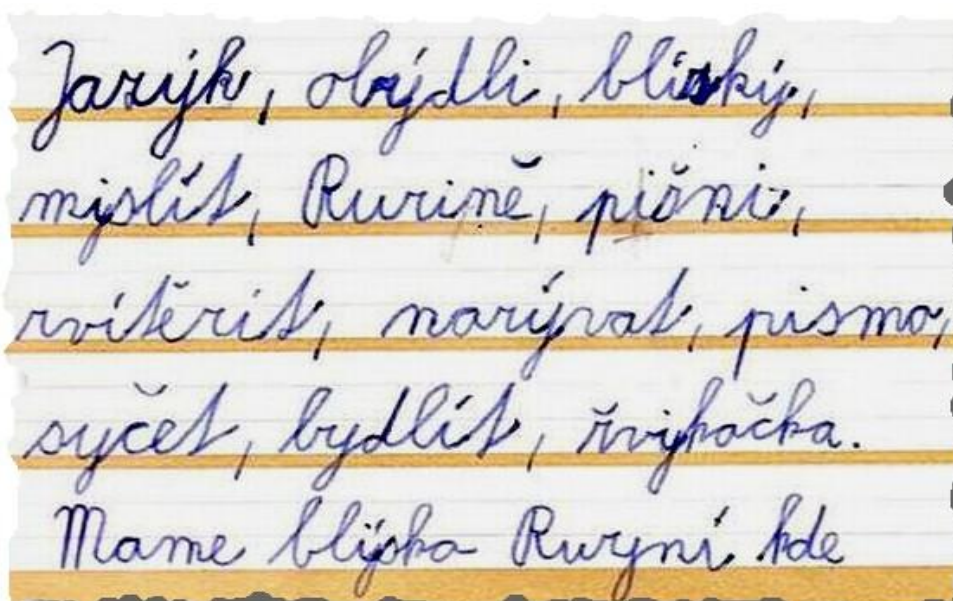 Jazýk, obýdli, bliský,
myslít, Ruzině, pišni,
zvítězit, nazývat, pismo,
syčet, bydlít, žvykačka.
Mame blýska Ruzyní kde